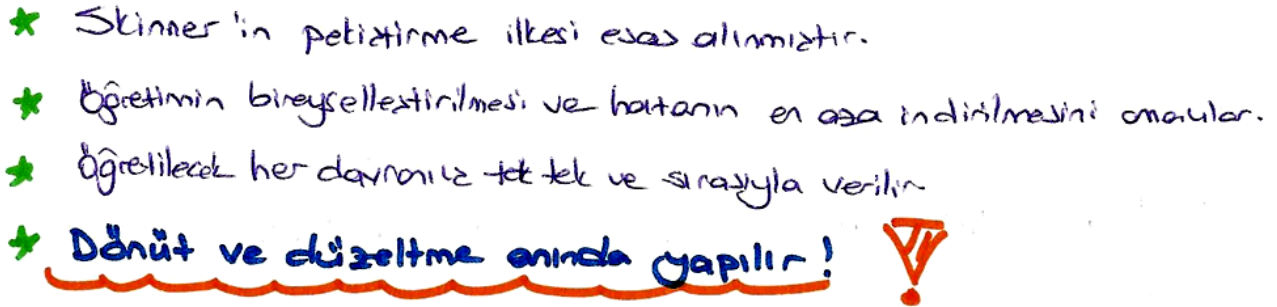 Skinner'in pekiştirme ilkesi esas alınmıştır.
Öğretimin bireyselleştirilmesi ve hatanın en aza indirilmesini amaçlar.
Öğretilecek her davranış tek tek ve sırasıyla verilir.
Dönüt ve düzeltme anında yapılır!